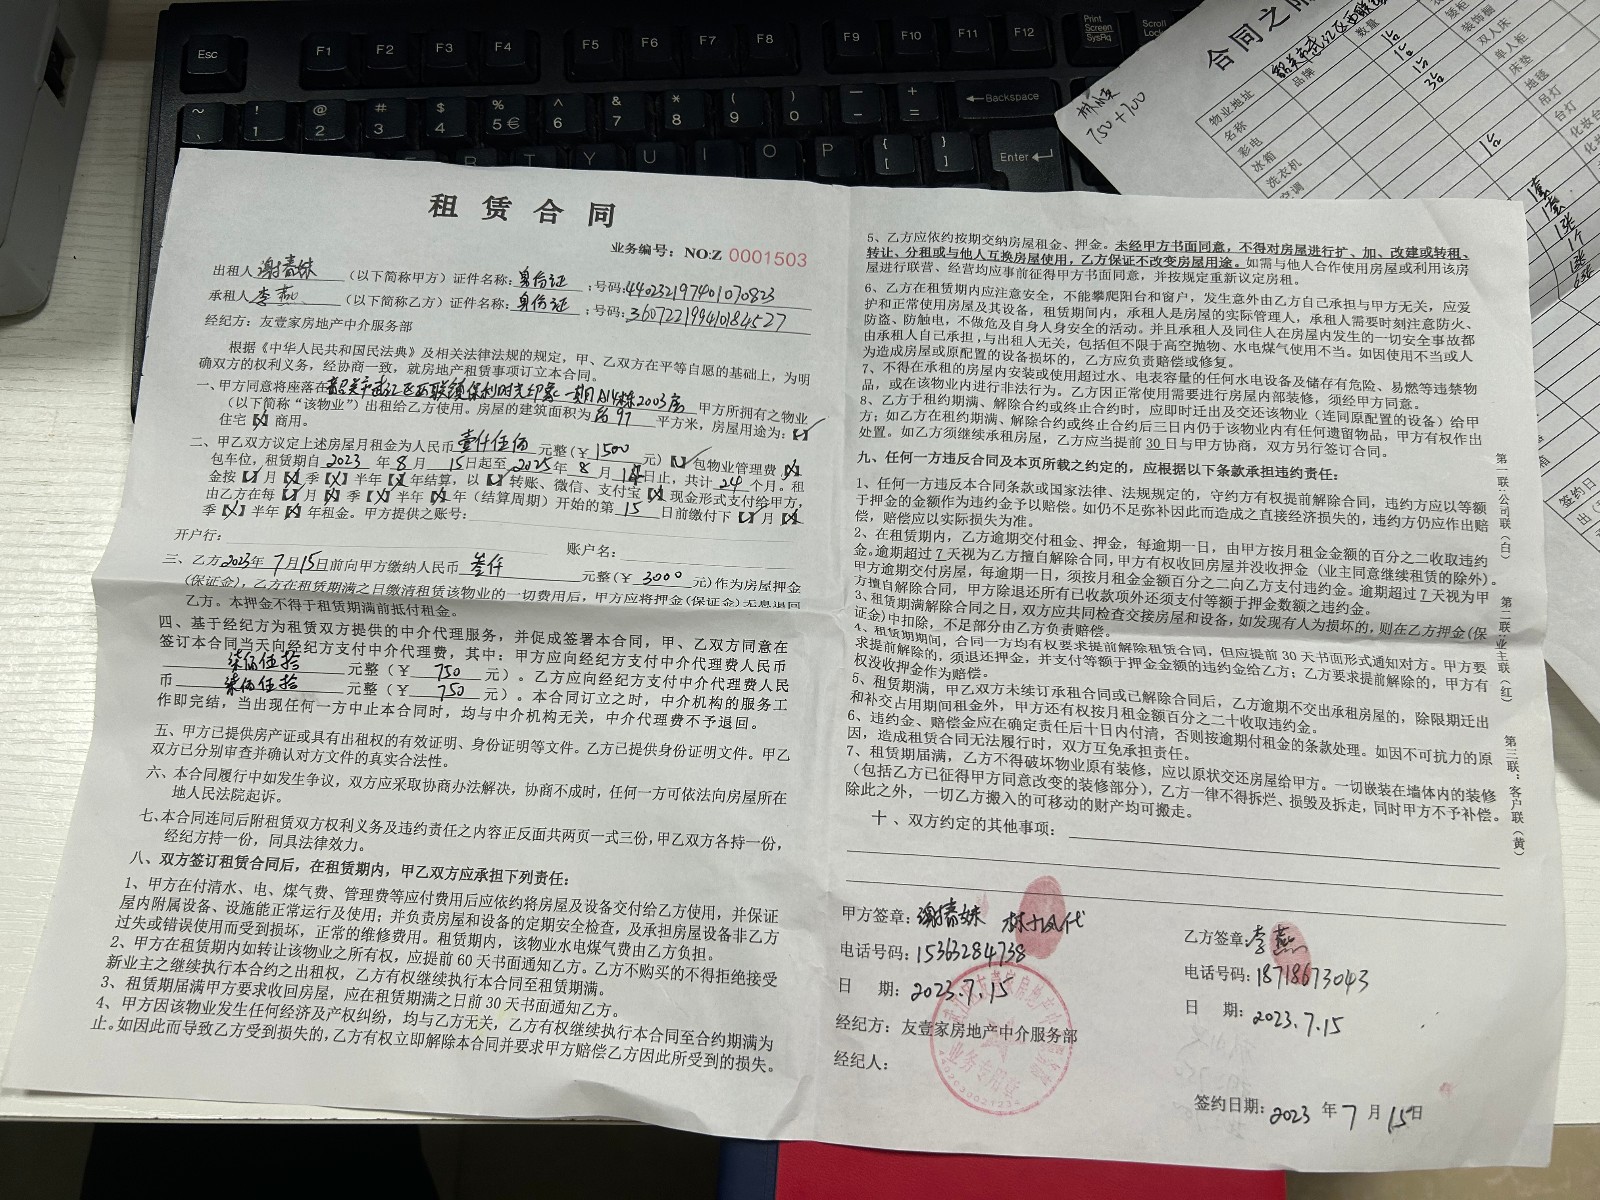 租赁合同
业务编号：NO:Z 0001503
出租人谢青妹（以下简称甲方）证件名称：身份证；号码：440232197401070823
承租人李燕（以下简称乙方）证件名称：身份证；号码：360722199410184527
经纪方：友壹家房地产中介服务部
根据《中华人民共和国民法典》及相关法律法规的规定，甲、乙双方在平等自愿的基础上，为明
确双方的权利义务，经协商一致，就房地产租赁事项订立本合同。
一、甲方同意将座落在韶关市武江区西联镇保利时光印象一期A14栋2003房甲方所拥有之物业
（以下简称“该物业”）出租给乙方使用。房屋的建筑面积为约97平方米，房屋用途为：【✓】
住宅【×】商用。
二、甲乙双方议定上述房屋月租金为人民币壹仟伍佰元整（￥1500元）【✓】包物业管理费【×】
包车位，租赁期自2023年8月15日起至2025年8月14日止，共计24个月。租
金按【✓】月【×】季【×】半年【×】年结算，以【✓】转账、微信、支付宝【×】现金形式支付给甲方，
由乙方在每【✓】月【×】季【×】半年【×】年（结算周期）开始的第15日前缴付下【✓】月【×】
季【×】半年【×】年租金。甲方提供之账号：
开户行： 账户名：
三、乙方2023年7月15日前向甲方缴纳人民币叁仟元整（￥3000元）作为房屋押金
（保证金），乙方在租赁期满之日缴清租赁该物业的一切费用后，甲方应将押金(保证金)无息退回
乙方。本押金不得于租赁期满前抵付租金。
四、基于经纪方为租赁双方提供的中介代理服务，并促成签署本合同，甲、乙双方同意在
签订本合同当天向经纪方支付中介代理费，其中：甲方应向经纪方支付中介代理费人民币
柒佰伍拾元整（￥750元）。乙方应向经纪方支付中介代理费人民
币柒佰伍拾元整（￥750元）。本合同订立之时，中介机构的服务工
作即完结，当出现任何一方中止本合同时，均与中介机构无关，中介代理费不予退回。
五、甲方已提供房产证或具有出租权的有效证明、身份证明等文件。乙方已提供身份证明文件。甲乙
双方已分别审查并确认对方文件的真实合法性。
六、本合同履行中如发生争议，双方应采取协商办法解决，协商不成时，任何一方可依法向房屋所在
地人民法院起诉。
七、本合同连同后附租赁双方权利义务及违约责任之内容正反面共两页一式三份，甲乙双方各持一份，
经纪方持一份，同具法律效力。
八、双方签订租赁合同后，在租赁期内，甲乙双方应承担下列责任：
1、甲方在付清水、电、煤气费、管理费等应付费用后应依约将房屋及设备交付给乙方使用，并保证
屋内附属设备、设施能正常运行及使用；并负责房屋和设备的定期安全检查，及承担房屋设备非乙方
过失或错误使用而受到损坏，正常的维修费用。租赁期内，该物业水电煤气费由乙方负担。
2、甲方在租赁期内如转让该物业之所有权，应提前60天书面通知乙方。乙方不购买的不得拒绝接受
新业主之继续执行本合约之出租权，乙方有权继续执行本合同至租赁期满。
3、租赁期届满甲方要求收回房屋，应在租赁期满之日前30天书面通知乙方。
4、甲方因该物业发生任何经济及产权纠纷，均与乙方无关，乙方有权继续执行本合同至合约期满为
止。如因此而导致乙方受到损失的，乙方有权立即解除本合同并要求甲方赔偿乙方因此所受到的损失。
5、乙方应依约按期交纳房屋租金、押金。未经甲方书面同意，不得对房屋进行扩、加、改建或转租、
转让、分租或与他人互换房屋使用，乙方保证不改变房屋用途。如需与他人合作使用房屋或利用该房
屋进行联营、经营均应事前征得甲方书面同意，并按规定重新议定房租。
6、乙方在租赁期内应注意安全，不能攀爬阳台和窗户，发生意外由乙方自己承担与甲方无关，应爱
护和正常使用房屋及其设备，租赁期间内，承租人是房屋的实际管理人，承租人需要时刻注意防火、
防盗、防触电，不做危及自身人身安全的活动。并且承租人及同住人在房屋内发生的一切安全事故都
由承租人自己承担，与出租人无关，包括但不限于高空抛物、水电煤气使用不当。如因使用不当或人
为造成房屋或原配置的设备损坏的，乙方应负责赔偿或修复。
7、不得在承租的房屋内安装或使用超过水、电表容量的任何水电设备及储存有危险、易燃等违禁物
品，或在该物业内进行非法行为。乙方因正常使用需要进行房屋内部装修，须经甲方同意。
8、乙方于租约期满、解除合约或终止合约时，应即时迁出及交还该物业（连同原配置的设备）给甲
方；如乙方在租约期满、解除合约或终止合约后三日内仍于该物业内有任何遗留物品，甲方有权作出
处置。如乙方须继续承租房屋，乙方应当提前30日与甲方协商，双方另行签订合同。
九、任何一方违反合同及本页所载之约定的，应根据以下条款承担违约责任：
1、任何一方违反本合同条款或国家法律、法规规定的，守约方有权提前解除合同，违约方应以等额
于押金的金额作为违约金予以赔偿。如仍不足弥补因此而造成之直接经济损失的，违约方仍应作出赔
偿，赔偿应以实际损失为准。
2、在租赁期内，乙方逾期交付租金、押金，每逾期一日，由甲方按月租金金额的百分之二收取违约
金。逾期超过7天视为乙方擅自解除合同，甲方有权收回房屋并没收押金（业主同意继续租赁的除外）。
甲方逾期交付房屋，每逾期一日，须按月租金金额百分之二向乙方支付违约金。逾期超过7天视为甲
方擅自解除合同，甲方除退还所有已收款项外还须支付等额于押金数额之违约金。
3、租赁期满解除合同之日，双方应共同检查交接房屋和设备，如发现有人为损坏的，则在乙方押金(保
证金)中扣除，不足部分由乙方负责赔偿。
4、租赁期期间，合同一方均有权要求提前解除租赁合同，但应提前30天书面形式通知对方。甲方要
求提前解除的，须退还押金，并支付等额于押金金额的违约金给乙方；乙方要求提前解除的，甲方有
权没收押金作为赔偿。
5、租赁期满，甲乙双方未续订承租合同或已解除合同后，乙方逾期不交出承租房屋的，除限期迁出
和补交占用期间租金外，甲方还有权按月租金额百分之二十收取违约金。
6、违约金、赔偿金应在确定责任后十日内付清，否则按逾期付租金的条款处理。如因不可抗力的原
因，造成租赁合同无法履行时，双方互免承担责任。
7、租赁期届满，乙方不得破坏物业原有装修，应以原状交还房屋给甲方。一切嵌装在墙体内的装修
（包括乙方已征得甲方同意改变的装修部分），乙方一律不得拆烂、损毁及拆走，同时甲方不予补偿。
除此之外，一切乙方搬入的可移动的财产均可搬走。
十、双方约定的其他事项：
甲方签章：谢青妹 林小凤代
电话号码：15363284738
日 期：2023.7.15
经纪方：友壹家房地产中介服务部
经纪人：
乙方签章：李燕
电话号码：18718673043
日 期：2023.7.15
签约日期：2023年7月15日
业务专用章
第一联：公司联（白）
第二联：业主联（红）
第三联：客户联（黄）
合同之附
物业地址 韶关市武江区西联
名称 品牌 数量
彩电 1台
冰箱 1台
洗衣机 1台
空调 3台
装饰橱
双人床
单人柜
床垫
地毯
吊灯
台灯
化妆台
1台
1套
1套
1张
1个
1张
750+700
签约日
Esc F1 F2 F3 F4 F5 F6 F7 F8 F9 F10 F11 F12 Print Screen SysRq Scroll Lock
~ ! 1 @ 2 # 3 $ 4 % 5 € ^ 6 & 7 * 8 ( 9 ) 0 — - + = Backspace
R T Y U I O P { [ } ] Enter